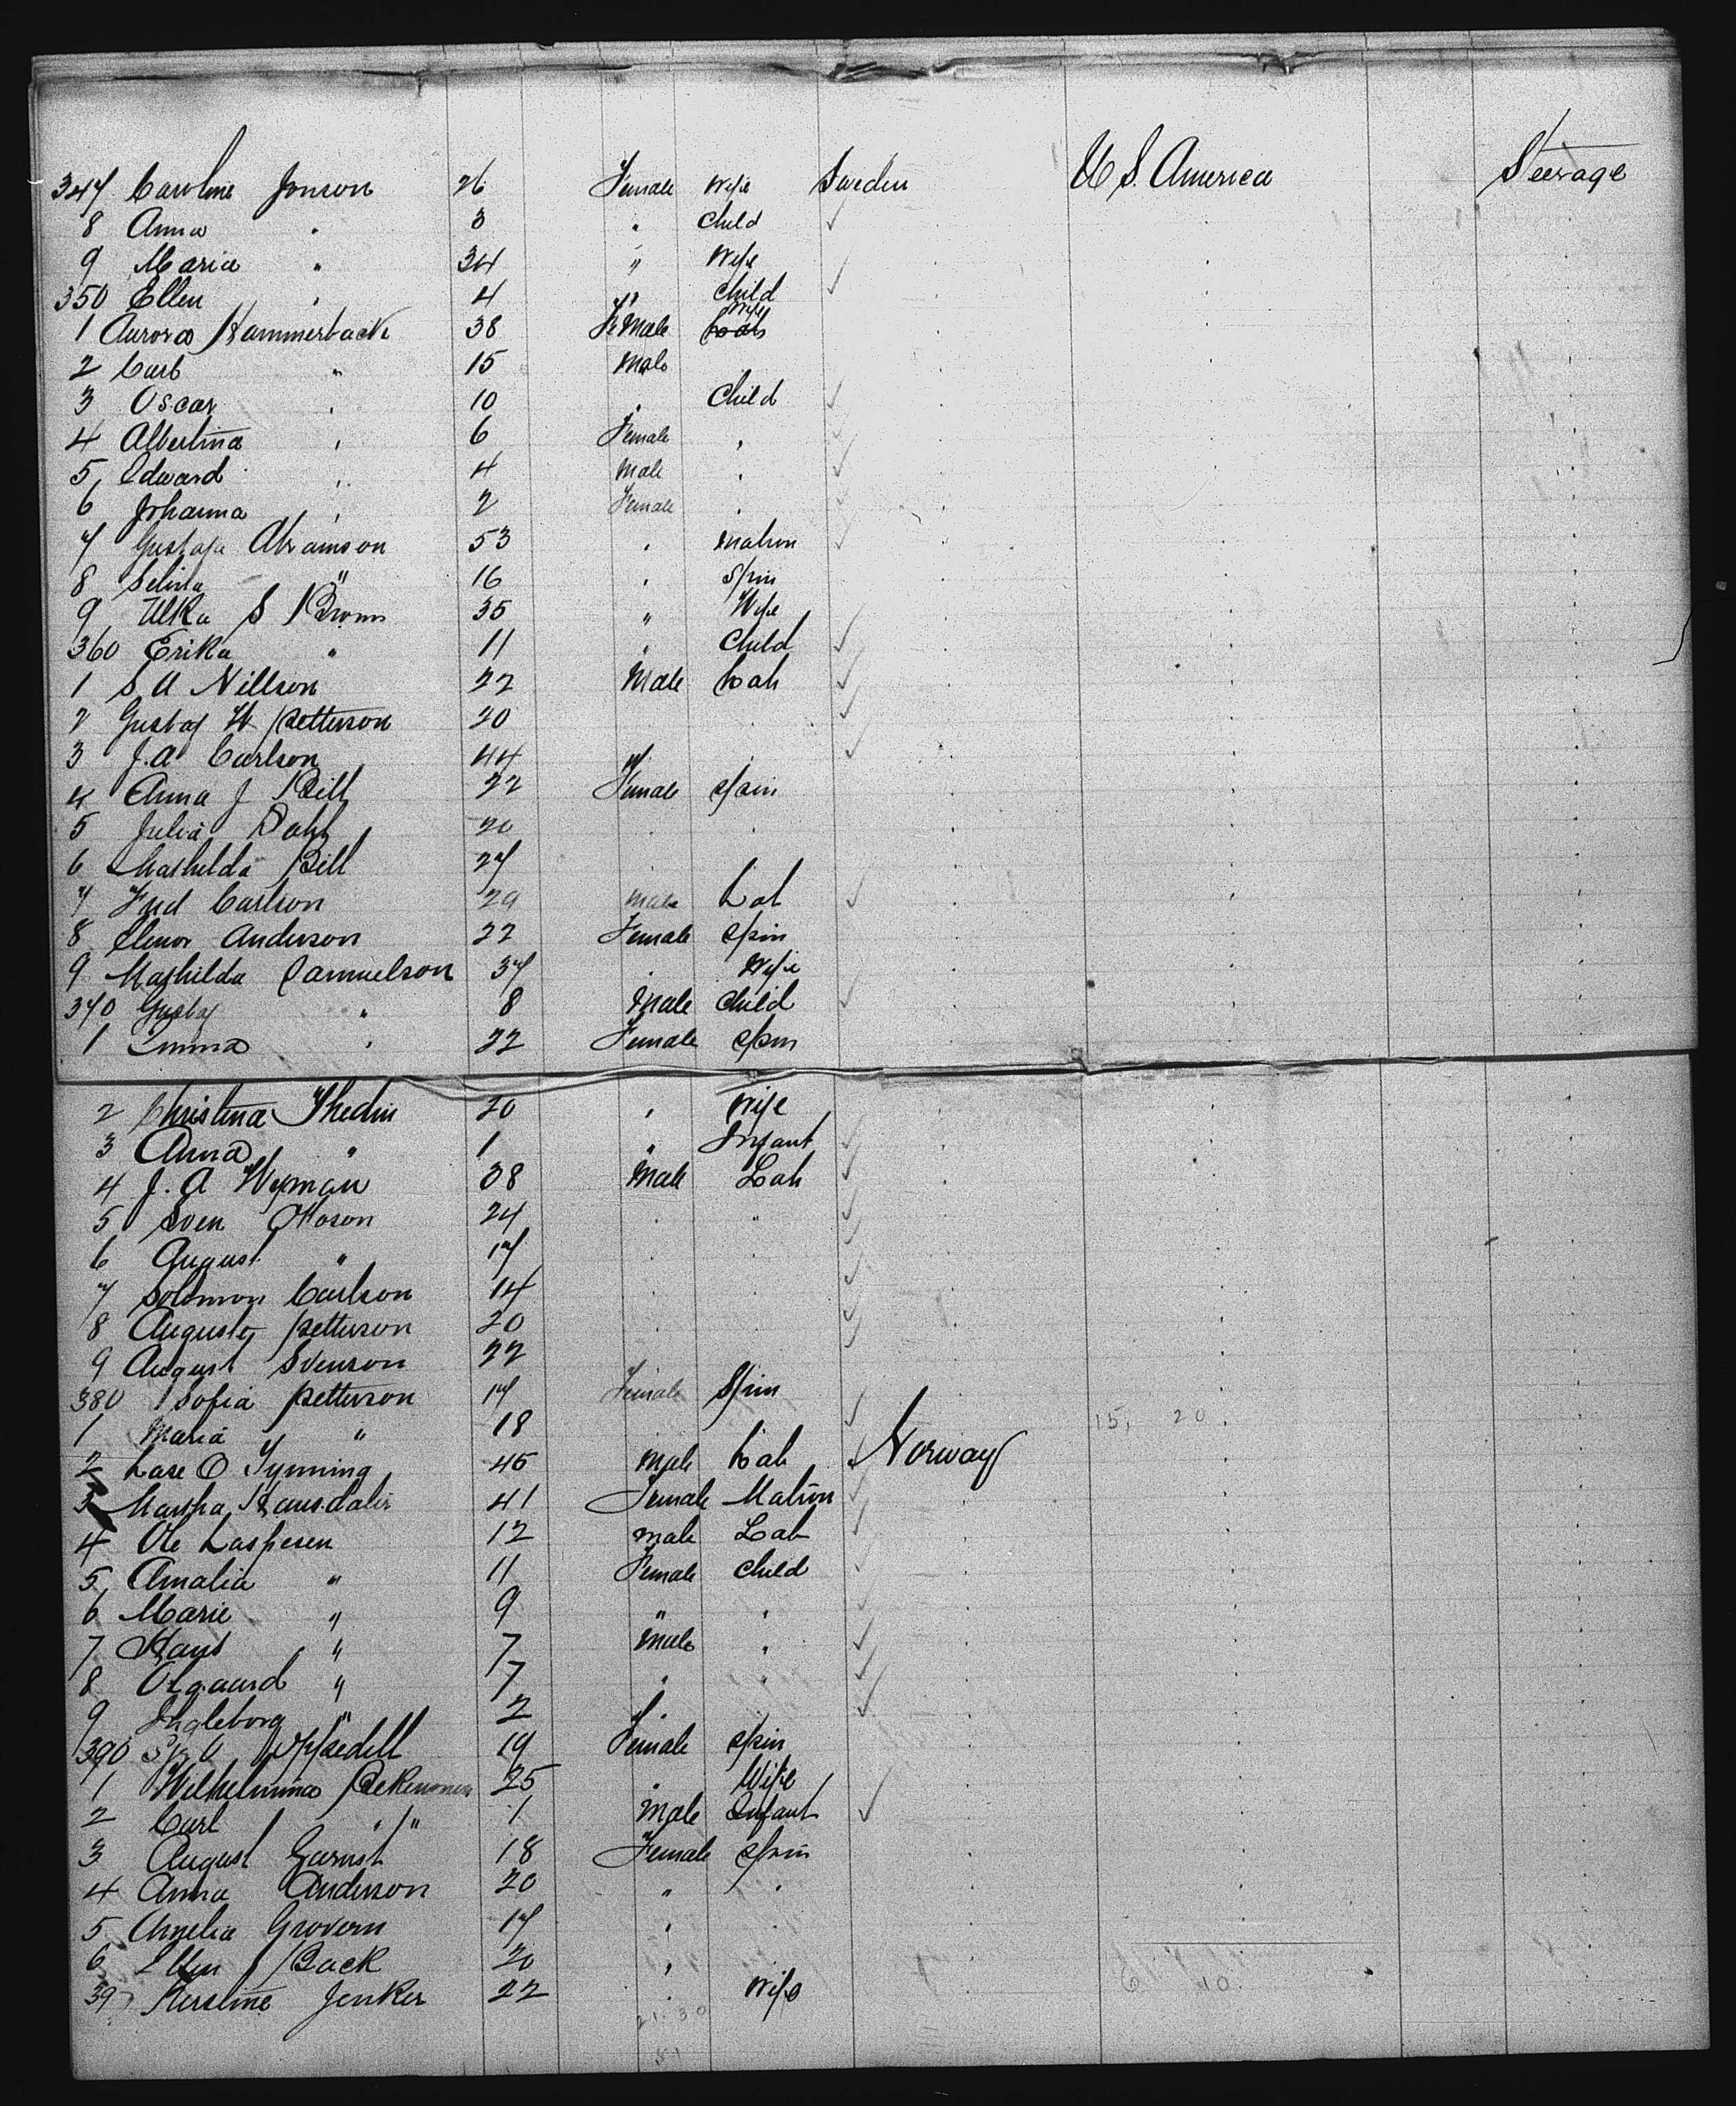 347 Caroline Jonson 26 Female Wife Sweden U S. America Steerage
8 Anna " 3 " Child ✓
9 Maria " 34 " Wife
350 Ellen " 4 " Child ✓
1 Aurora Hammerback 38 Female Wife
2 Carl " 15 Male
3 Oscar " 10 " Child ✓
4 Albertina " 6 Female " ✓
5 Edward " 4 Male " ✓
6 Johanna " 2 Female " ✓
7 Gustafa Abramson 53 " Matron ✓
8 Selina " 16 " Spin
9 Ulka S Brown 35 " Wife
360 Erika " 11 " Child ✓
1 S A Nillson 22 Male Lab ✓
2 Gustaf W Petterson 20 ✓
3 J. A Carlson 44 " ✓
4 Anna J Bill 22 Female Spin
5 Julia Dahl 20
6 Mathilda Bill 27
7 Fred Carlson 29 Male Lab ✓
8 Elenor Anderson 22 Female Spin
9 Mathilda Samuelson 37 " Wife
370 Gustaf " 8 Male Child ✓
1 Emma " 22 Female Spin
2 Christina Thedin 20 " Wife
3 Anna " 1 " Infant ✓
4 J. A Wyman 38 Male Lab ✓
5 Sven Ottoson 24 " " ✓
6 August " 17 ✓
7 Solomon Carlson 14 ✓
8 August Petterson 20 ✓
9 August Svenson 22 ✓
380 Sofia Petterson 17 Female Spin
1 Maria " 18 ✓ 15, 20
2 Lase O Tynning 45 Male Lab ✓ Norway
3 Martha 41 Female Matron ✓
4 Ole Laspesen 12 Male Lab ✓
5 Amalia " 11 Female Child ✓
6 Marie " 9 " " ✓
7 Hans " 7 Male " ✓
8 Olgaard " 7 " " ✓
9 Ingleborg " 2 " ✓
390 19 Female Spin
1 Wilhelmina 25 " Wife
2 Carl " 1 Male Infant ✓
3 August 18 Female Spin
4 Anna Anderson 20 " "
5 Amelia Grovern 17 "
6 Ellen J Back 20 " 10
397 Kerstine Jenker 22 " Wife
21. 30
51